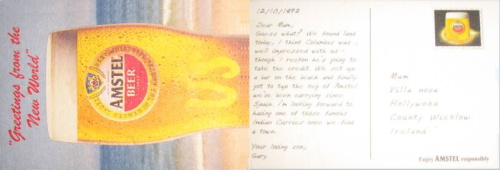 "Greetings from the
New World"
AMSTEL
BEER
12/10/1492
Dear Mum,
Guess what? We found land
today. I think Columbus was
well impressed with me
though I reckon he's going to
take the credit. We set up
a bar on the beach and finally
got to tap the keg of Amstel
we've been carrying since
Spain. I'm looking forward to
having one of those famous
Indian Curries once we find
a town.
Your loving son,
Gary
Mum
Villa nova
Hollywood
County Wicklow
Ireland
Enjoy AMSTEL responsibly